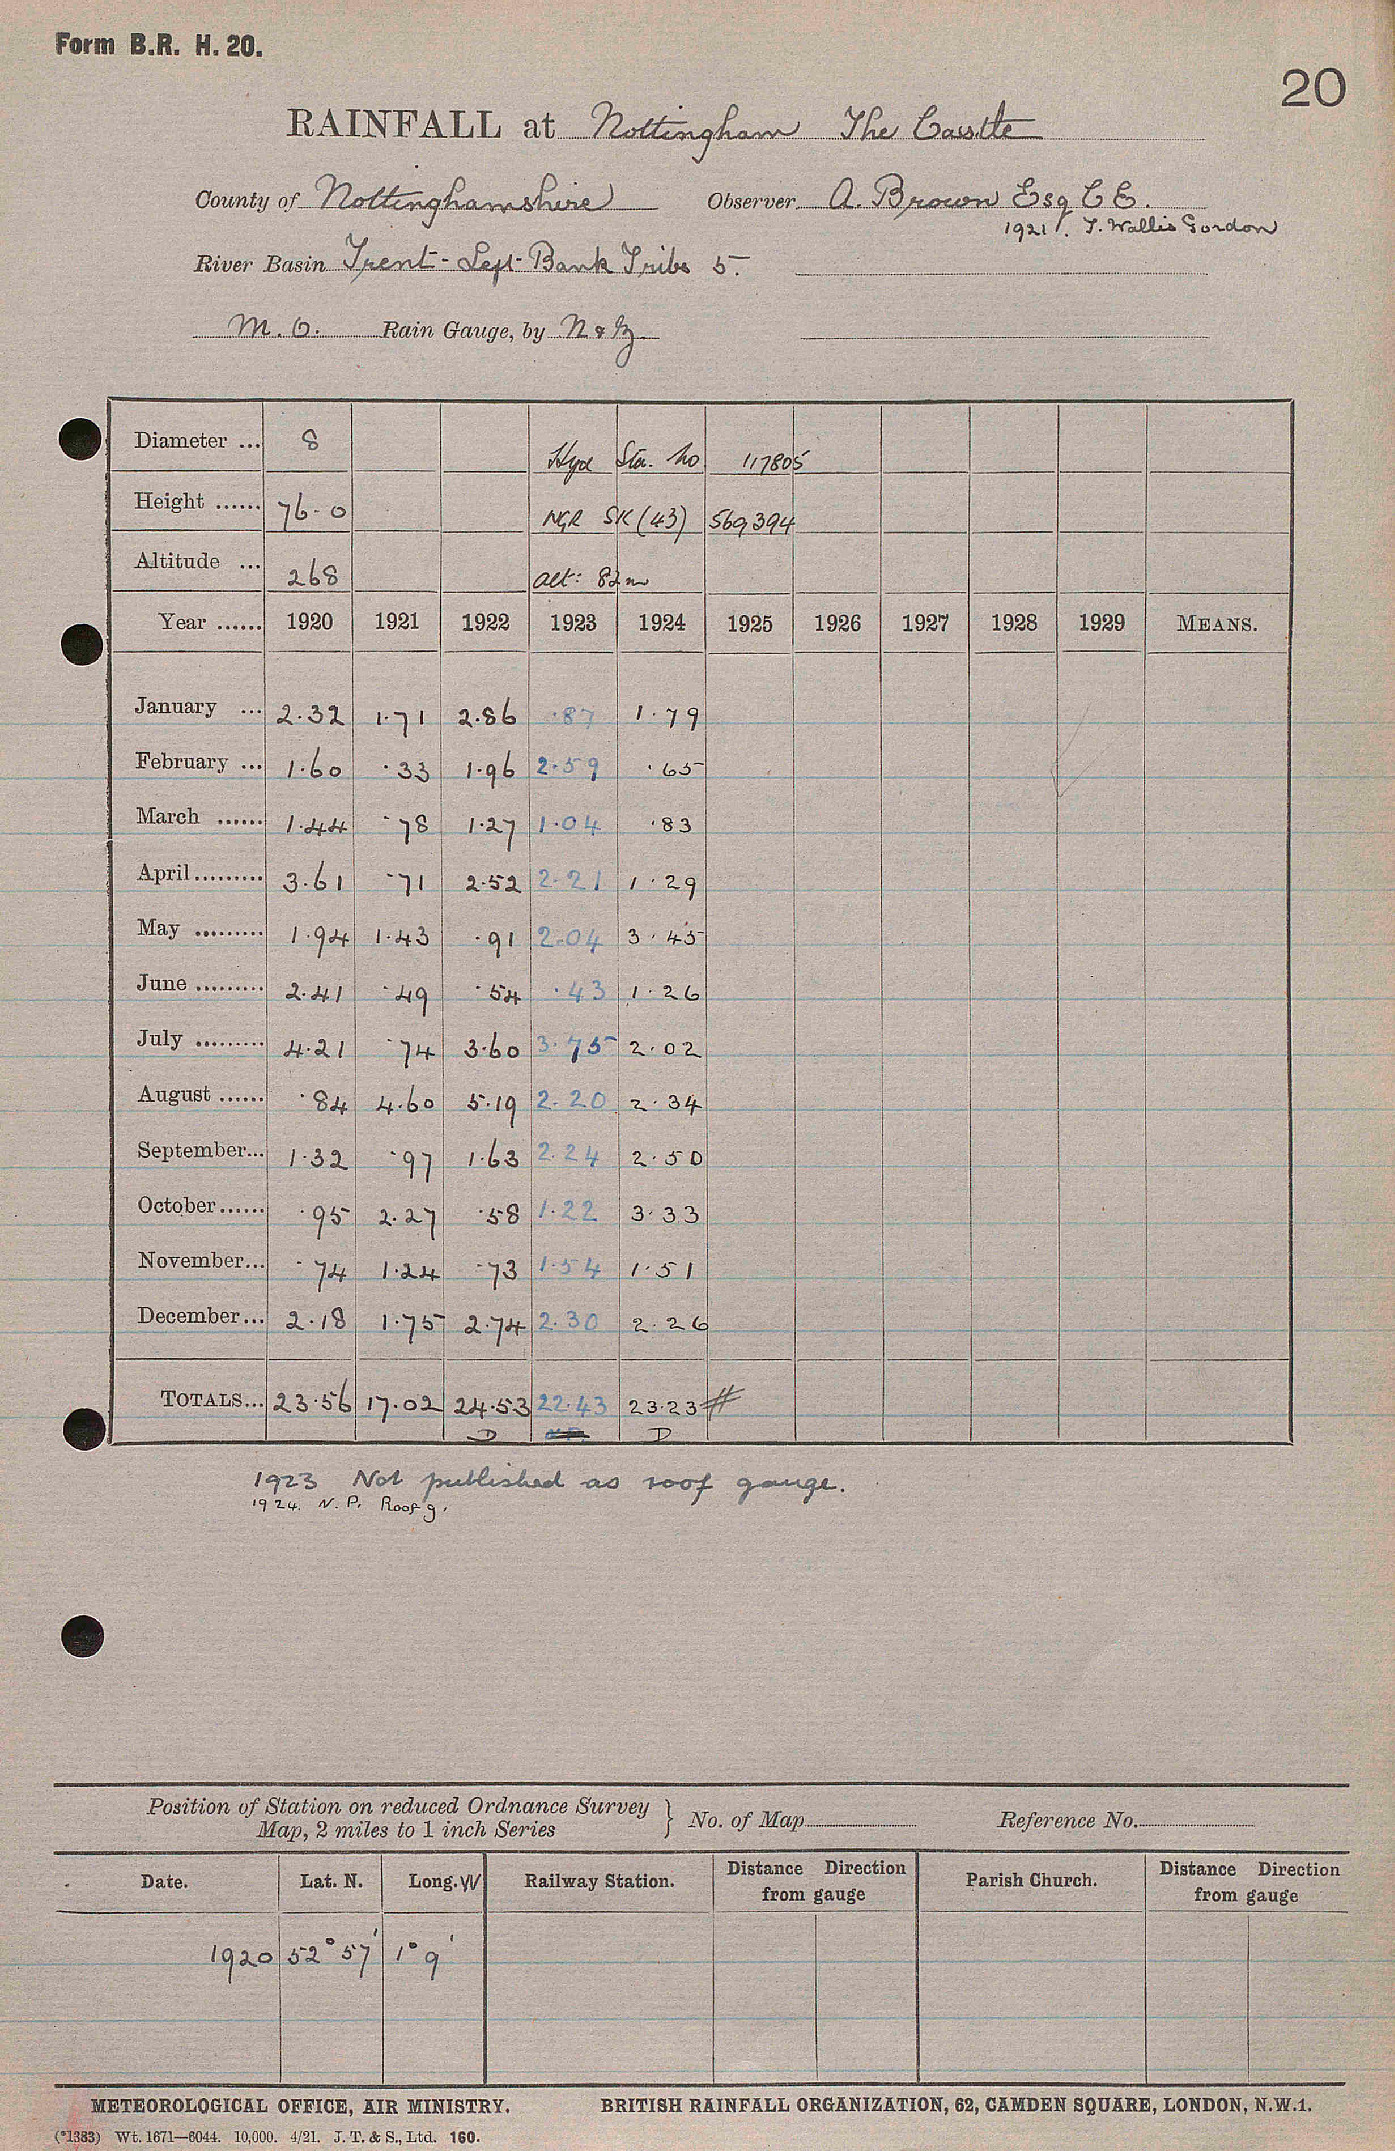 Form B.R. H. 20.
20
RAINFALL at Nottingham The Castle
County of Nottinghamshire Observer, A. Brown Esq C E.
1921. T. Wallis Gordon
River Basin Trent - Left - Bank Tribs 5.
M. O. Rain Gauge, by N & Z
Diameter ... 8 Hyd Sta. No 117805
Height ...... 76-0 NGR SK (43) 569394
Altitude ... 268 alt: 82m
Year ...... 1920 1921 1922 1923 1924 1925 1926 1927 1928 1929 MEANS.
January ... 2.32 1.71 2.86 .87 1.79
February ... 1.60 .33 1.96 2.59 .65
March ...... 1.44 .78 1.27 1.04 .83
April......... 3.61 .71 2.52 2.21 1.29
May ......... 1.94 1.43 .91 2.04 3.45
June ......... 2.41 .49 .54 .43 1.26
July ......... 4.21 .74 3.60 3.75 2.02
August ...... .84 4.60 5.19 2.20 2.34
September... 1.32 .97 1.63 2.24 2.50
October...... .95 2.27 .58 1.22 3.33
November... .74 1.24 .73 1.54 1.51
December... 2.18 1.75 2.74 2.30 2.26
TOTALS... 23.56 17.02 24.53 22.43 23.23 #
D D
1923 Not published as roof gauge.
1924. N. P. Roof g.
Position of Station on reduced Ordnance Survey
Map, 2 miles to 1 inch Series } No. of Map Reference No.
Date. Lat. N. Long. W Railway Station. Distance Direction from gauge Parish Church. Distance Direction from gauge
1920 52° 57' 1° 9'
METEOROLOGICAL OFFICE, AIR MINISTRY. BRITISH RAINFALL ORGANIZATION, 62, CAMDEN SQUARE, LONDON, N.W.1.
(*1383) Wt. 1671—6044. 10,000. 4/21. J. T. & S., Ltd. 160.